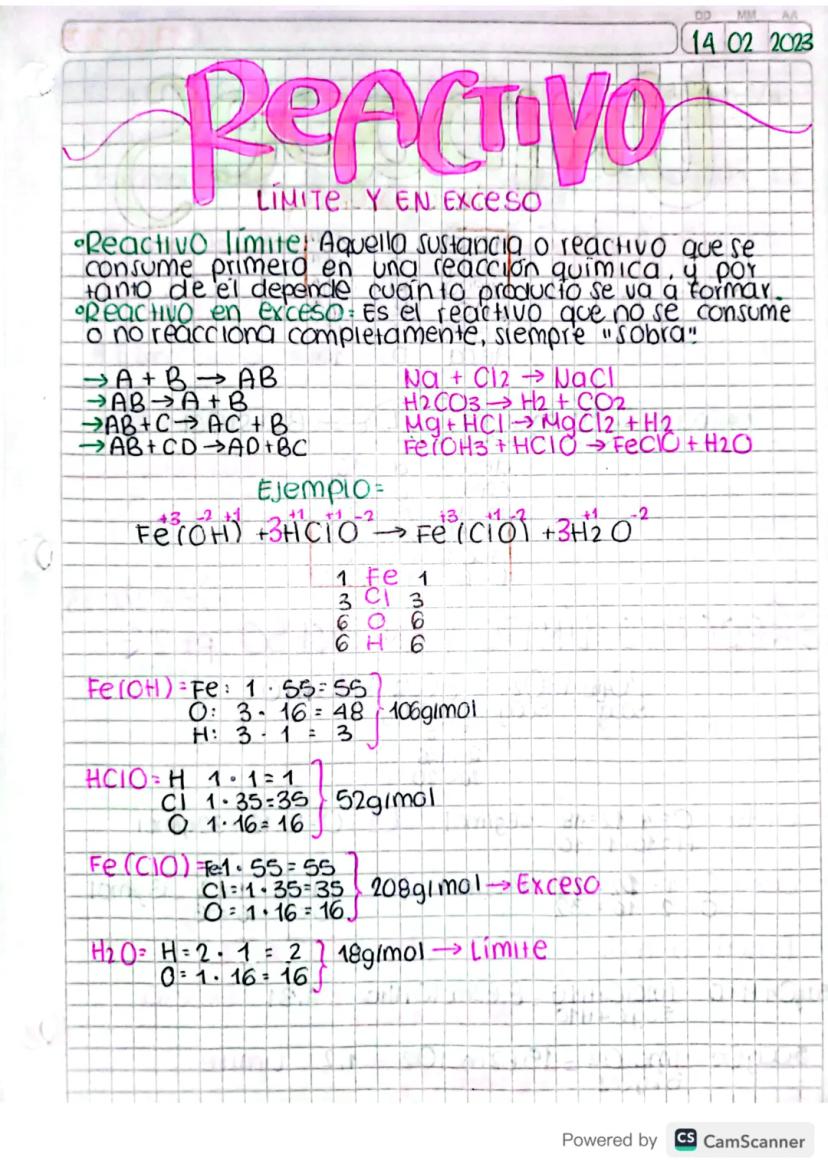 DD MM AA
14 02 2023
ReACTIVO
LÍMITE Y EN EXCESO
Reactivo límite: Aquella sustancia o reactivo que se
consume primero en una reacción química, y por
tanto de el depende cuánto producto se va a formar.
Reactivo en exceso: Es el reactivo que no se consume
o no reacciona completamente, siempre "sobra".
→ A + B → AB Na + Cl2 → NaCl
→ AB → A + B H2CO3 → H2 + CO2
→ AB + C → AC + B Mg + HCl → MgCl2 + H2
→ AB + CD → AD + BC Fe(OH3 + HClO → FeClO + H2O
Ejemplo=
+3 -2 +1 +1 +1 -2 +3 +1 -2 +1 -2
Fe(OH) +3HClO → Fe(ClO) +3H2O
1 Fe 1
3 Cl 3
6 O 6
6 H 6
Fe(OH) = Fe: 1 · 55 = 55
O: 3 · 16 = 48 106g/mol
H: 3 · 1 = 3
HClO = H 1 · 1 = 1
Cl 1 · 35 = 35 52g/mol
O 1 · 16 = 16
Fe(ClO) = Fe 1 · 55 = 55
Cl = 1 · 35 = 35 208g/mol → Exceso
O = 1 · 16 = 16
H2O = H = 2 · 1 = 2 18g/mol → Límite
O = 1 · 16 = 16
Powered by CS CamScanner